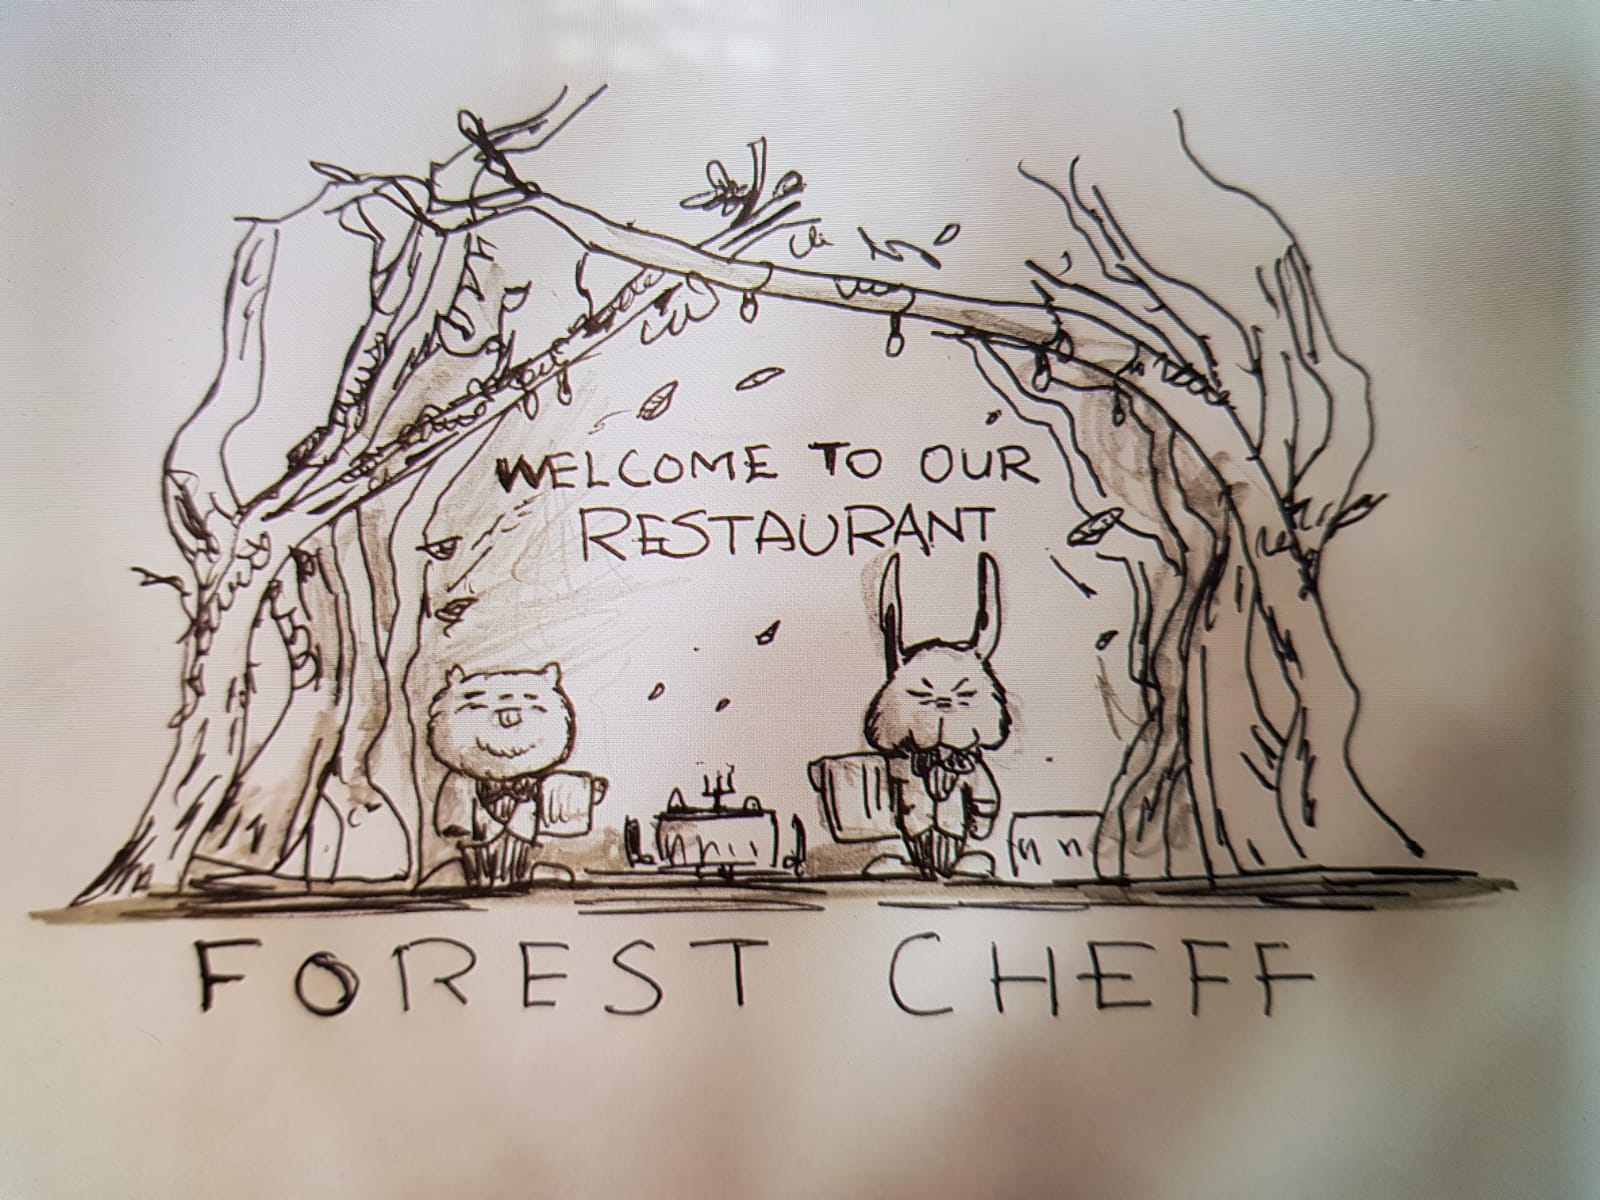 WELCOME TO OUR
RESTAURANT
FOREST CHEFF